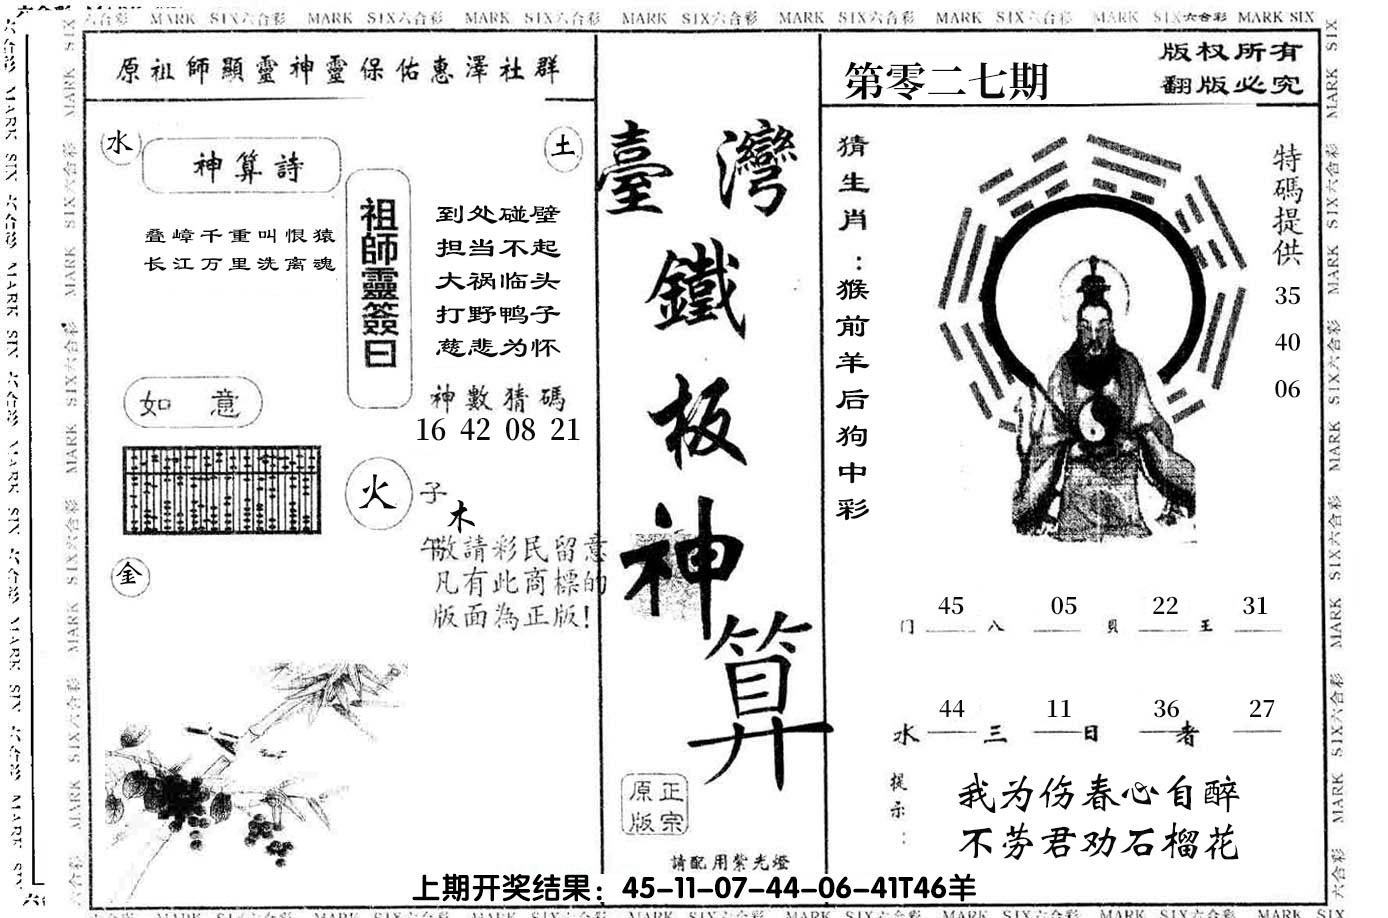 MARK SIX六合彩 MARK SIX六合彩 MARK SIX六合彩 MARK SIX六合彩 MARK SIX六合彩 MARK SIX六合彩 MARK SIX六合彩 MARK SIX
原祖師顯靈神靈保佑惠澤社群
水
神算詩
土
叠嶂千重叫恨猿
长江万里洗离魂
祖師靈簽曰
到处碰壁
担当不起
大祸临头
打野鸭子
慈悲为怀
神數猜碼
16 42 08 21
如意
火
子
木
午
敬請彩民留意
凡有此商標的
版面為正版!
金
臺灣
鐵
板
神
算
原正
版宗
請配用紫光燈
第零二七期
版权所有
翻版必究
猜生肖:猴前羊后狗中彩
特碼提供
35
40
06
45 05 22 31
门 八 貝 王
44 11 36 27
水 三 日 者
提示:
我为伤春心自醉
不劳君劝石榴花
上期开奖结果：45-11-07-44-06-41T46羊